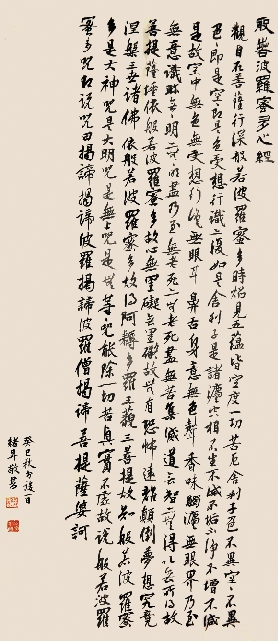 般若波羅蜜多心經
觀自在菩薩行深般若波羅蜜多時照見五蘊皆空度一切苦厄舍利子色不異空空不異
色色即是空空即是色受想行識亦復如是舍利子是諸法空相不生不滅不垢不淨不增不減
是故空中無色無受想行識無眼耳鼻舌身意無色聲香味觸法無眼界乃至
無意識界無無明亦無無明盡乃至無老死亦無老死盡無苦集滅道無智亦無得以無所得故
菩提薩埵依般若波羅蜜多故心無罣礙無罣礙故無有恐怖遠離顛倒夢想究竟
涅槃三世諸佛依般若波羅蜜多故得阿耨多羅三藐三菩提故知般若波羅蜜
多是大神咒是大明咒是無上咒是無等等咒能除一切苦真實不虛故說般若波羅
蜜多咒即說咒曰揭諦揭諦波羅揭諦波羅僧揭諦菩提薩婆訶
癸巳秋
敬書